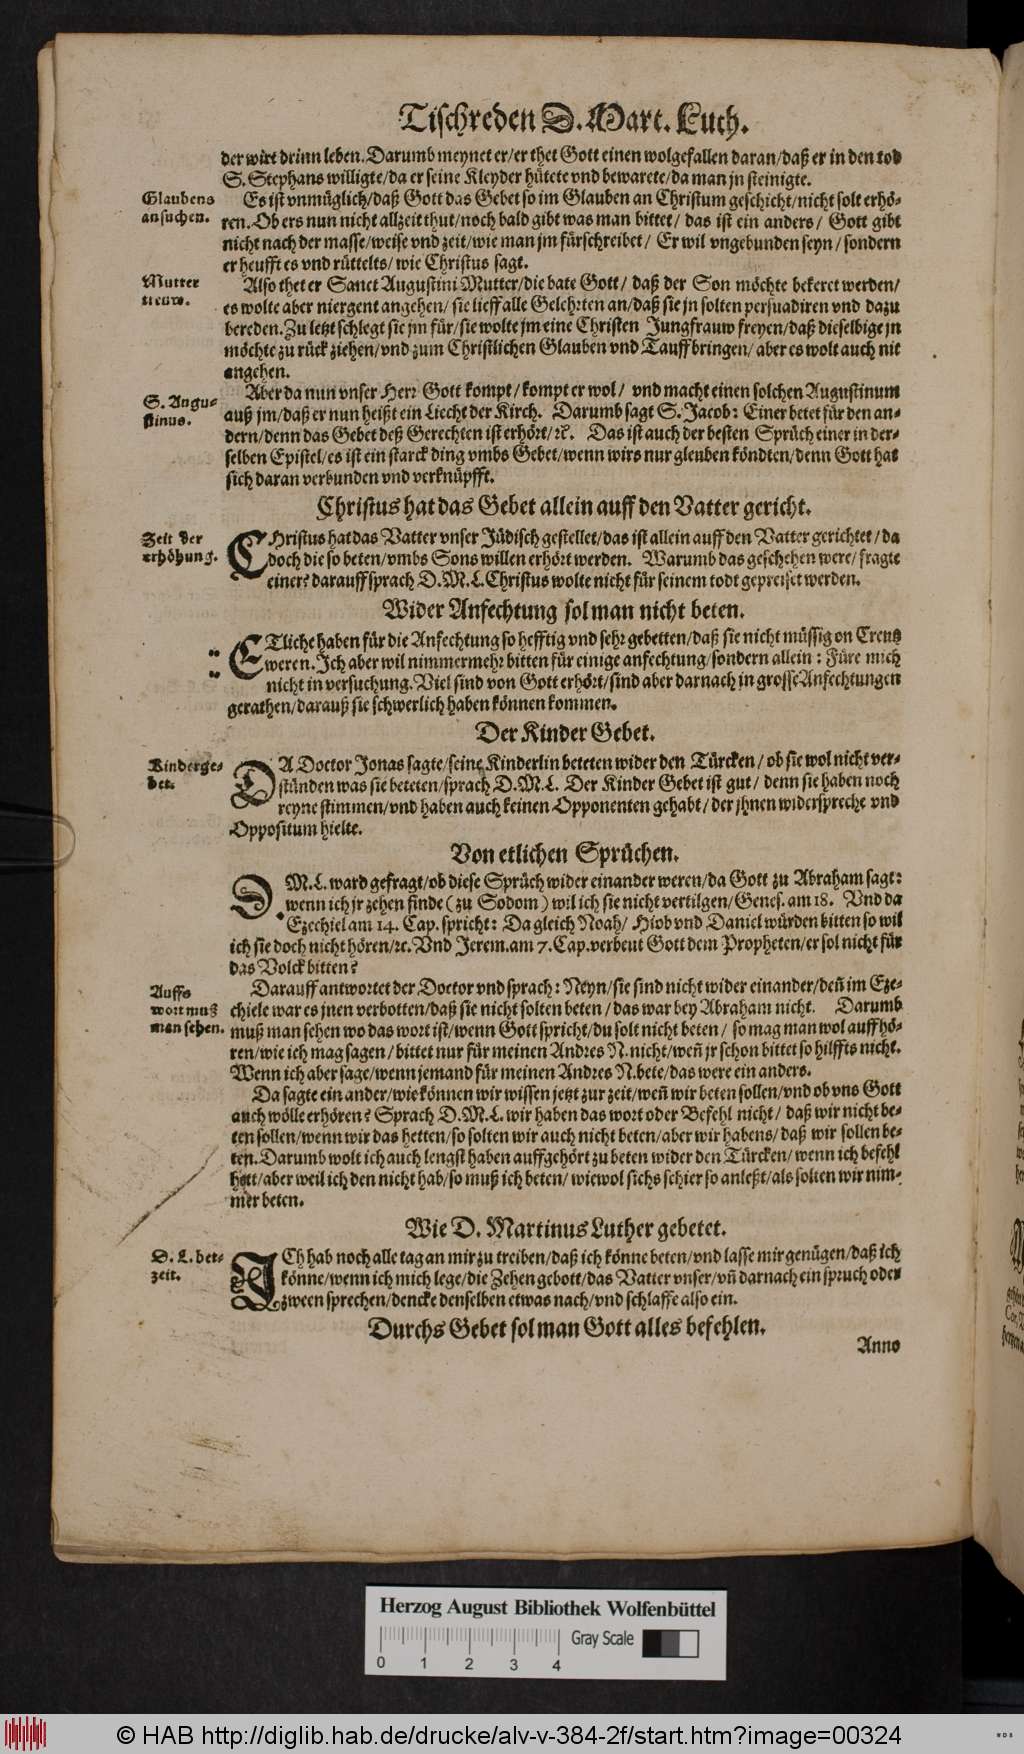 Tischreden D. Mart. Luth.
der wirt drinn leben. Darumb meynet er/er thet Gott einen wolgefallen daran/daß er in den tod
S. Stephans willigte/da er seine Kleyder hütete vnd bewarete/da man jn steinigte.
Glaubens
ansuchen.
Es ist vnmüglich/daß Gott das Gebet so im Glauben an Christum geschicht/nicht solt erhö-
ren. Ob ers nun nicht allzeit thut/noch bald gibt was man bittet/ das ist ein anders/ Gott gibt
nicht nach der masse/weise vnd zeit/wie man jm fürschreibet/ Er wil vngebunden seyn/ sondern
er heufft es vnd rüttelts/ wie Christus sagt.
Mutter
trewe.
Also thet er Sanct Augustini Mutter/die bate Gott/ daß der Son möchte bekeret werden/
es wolte aber niergent angehen/ sie lieff alle Gelehrten an/daß sie jn solten persuadiren vnd dazu
bereden. Zu letzt schlegt sie jm für/sie wolte jm eine Christen Jungfrauw freyen/daß dieselbige jn
möchte zu rück ziehen/vnd zum Christlichen Glauben vnd Tauff bringen/ aber es wolt auch nit
angehen.
S. Augu-
stinus.
Aber da nun vnser Herr Gott kompt/kompt er wol/ vnd macht einen solchen Augustinum
auß jm/daß er nun heißt ein Liecht der Kirch. Darumb sagt S. Jacob: Einer betet für den an-
dern/denn das Gebet deß Gerechten ist erhört/ꝛc. Das ist auch der besten Sprüch einer in der-
selben Epistel/es ist ein starck ding vmbs Gebet/wenn wirs nur gleuben köndten/denn Gott hat
sich daran verbunden vnd verknüpfft.
Christus hat das Gebet allein auff den Vatter gericht.
Zeit der
erhöhung.
CHristus hat das Vatter vnser Jüdisch gestellet/das ist allein auff den Vatter gerichtet/da
doch die so beten/vmbs Sons willen erhört werden. Warumb das geschehen were/ fragte
einer? darauff sprach D. M. L. Christus wolte nicht für seinem todt gepreiset werden.
Wider Anfechtung sol man nicht beten.
ETliche haben für die Anfechtung so hefftig vnd sehr gebetten/daß sie nicht müssig on Creutz
weren. Ich aber wil nimmermehr bitten für einige anfechtung/sondern allein: Füre mich
nicht in versuchung. Viel sind von Gott erhört/sind aber darnach in grosse Anfechtungen
gerathen/darauß sie schwerlich haben können kommen.
Der Kinder Gebet.
Kinderge-
bet.
DA Doctor Jonas sagte/seine Kinderlin beteten wider den Türcken/ ob sie wol nicht ver-
stünden was sie beteten/sprach D. M. L. Der Kinder Gebet ist gut/ denn sie haben noch
reyne stimmen/vnd haben auch keinen Opponenten gehabt/ der jhnen widerspreche vnd
Oppositum hielte.
Von etlichen Sprüchen.
D. M. L. ward gefragt/ob diese Sprüch wider einander weren/da Gott zu Abraham sagt:
wenn ich jr zehen finde (zu Sodom) wil ich sie nicht vertilgen/Genes. am 18. Vnd da
Ezechiel am 14. Cap. spricht: Da gleich Noah/ Hiob vnd Daniel würden bitten so wil
ich sie doch nicht hören/ꝛc. Vnd Jerem. am 7. Cap. verbeut Gott dem Propheten/er sol nicht für
das Volck bitten?
Auffs
wort muß
man sehen.
Darauff antwortet der Doctor vnd sprach: Neyn/sie sind nicht wider einander/deñ im Eze-
chiele war es jnen verbotten/daß sie nicht solten beten/ das war bey Abraham nicht. Darumb
muß man sehen wo das wort ist/wenn Gott spricht/du solt nicht beten/ so mag man wol auffhö-
ren/wie ich mag sagen/ bittet nur für meinen Andres N. nicht/weñ jr schon bittet so hilffts nicht.
Wenn ich aber sage/wenn jemand für meinen Andres N. bete/das were ein anders.
Da sagte ein ander/wie können wir wissen jetzt zur zeit/weñ wir beten sollen/vnd ob vns Gott
auch wölle erhören? Sprach D. M. L. wir haben das wort oder Befehl nicht/ daß wir nicht be-
ten sollen/wenn wir das hetten/so solten wir auch nicht beten/aber wir habens/ daß wir sollen be-
ten. Darumb wolt ich auch lengst haben auffgehört zu beten wider den Türcken/ wenn ich befehl
hett/aber weil ich den nicht hab/so muß ich beten/ wiewol sichs schier so anleßt/als solten wir nim-
mer beten.
Wie D. Martinus Luther gebetet.
D. L. bet-
zeit.
ICh hab noch alle tag an mir zu treiben/daß ich könne beten/vnd lasse mir genügen/daß ich
könne/wenn ich mich lege/die Zehen gebott/das Vatter vnser/vñ darnach ein spruch oder
zween sprechen/dencke denselben etwas nach/vnd schlaffe also ein.
Durchs Gebet sol man Gott alles befehlen.
Anno
Herzog August Bibliothek Wolfenbüttel
Gray Scale
0 1 2 3 4
© HAB http://diglib.hab.de/drucke/alv-v-384-2f/start.htm?image=00324